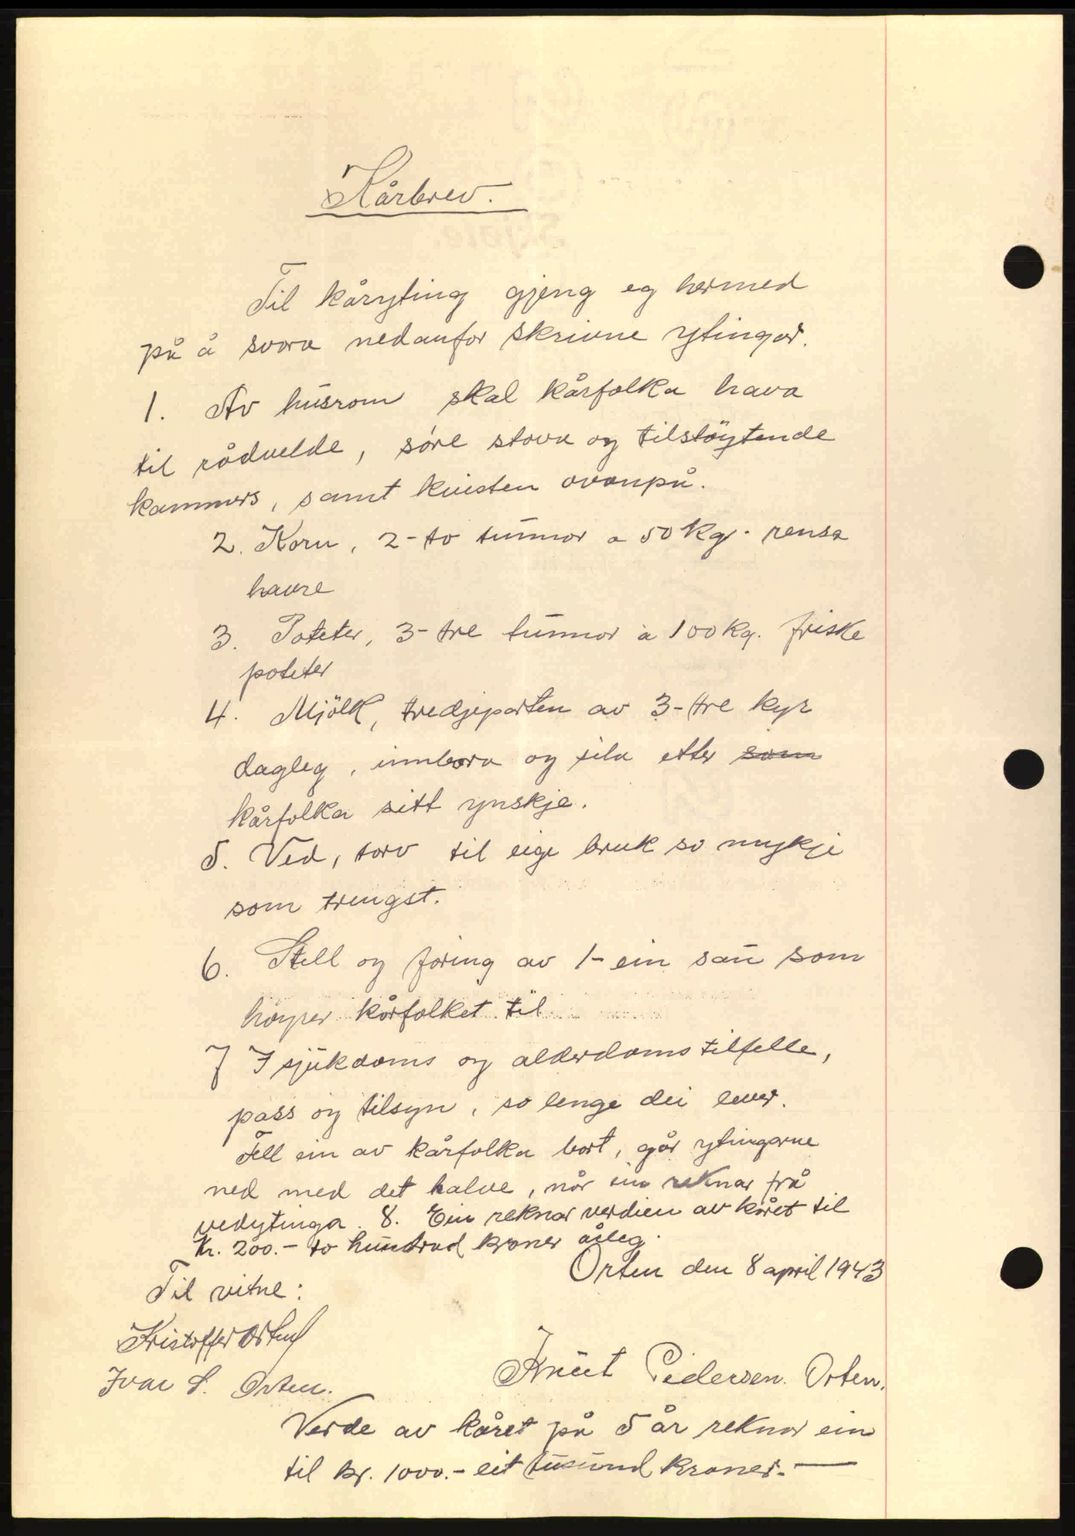 Kårbrev.
Til kåryting gjeng eg hermed
på å svara nedanfor skrivne ytingar.
1. Av husrom skal kårfolka hava
til rådvelde, søre stova og tilstöytende
kammers, samt kvisten ovanpå.
2. Korn, 2-to tunnor a 50 kg. rensa
havre
3. Poteter, 3-tre tunnor à 100 kg. friske
poteter
4. Mjölk, tredjeparten av 3-tre kyr
dagleg, innbora og sila etter som
kårfolka sitt ynskje.
5. Ved, torv til eige bruk so mykje
som trengst.
6. Stell og foring av 1-ein sau som
høyrer kårfolket til
7 I sjukdoms og alderdoms tilfelle,
pass og tilsyn, so lenge dei lever.
Fell ein av kårfolka bort, går ytingarne
ned med det halve, når ein reknar frå
vedytinga. 8. Ein reknar verdien av kåret til
Kr. 200.- to hundrad kroner årleg.
Orten den 8 april 1943
Til vitne:
Kristoffer Orten
Ivar S. Orten.
Knut Pedersen Orten.
Verde av kåret på 5 år reknar ein
til kr. 1000.- eit tusund kroner.-